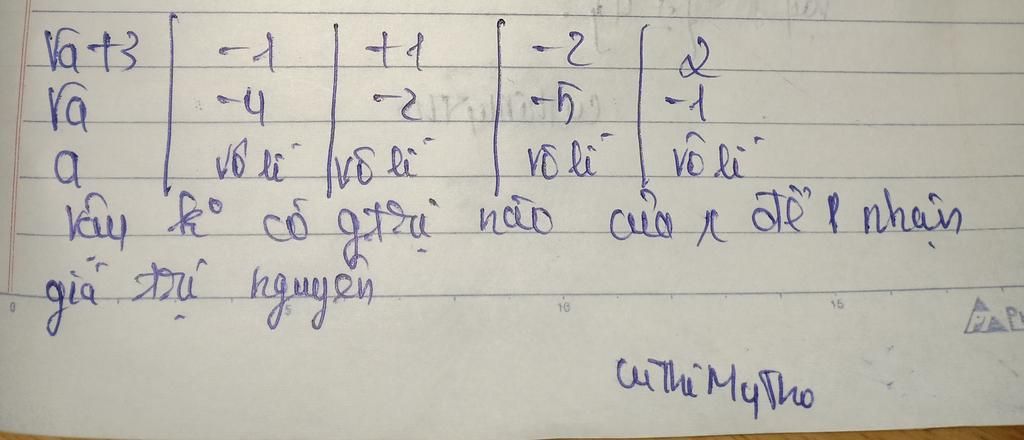 √a+3 | -1 | +1 | -2 | 2
√a | -4 | -2 | -5 | -1
a | vô lí | vô lí | vô lí | vô lí
Vậy k° có gtrị nào của x để P nhận
giá trị nguyên
5 10 15
CuThiMyTho